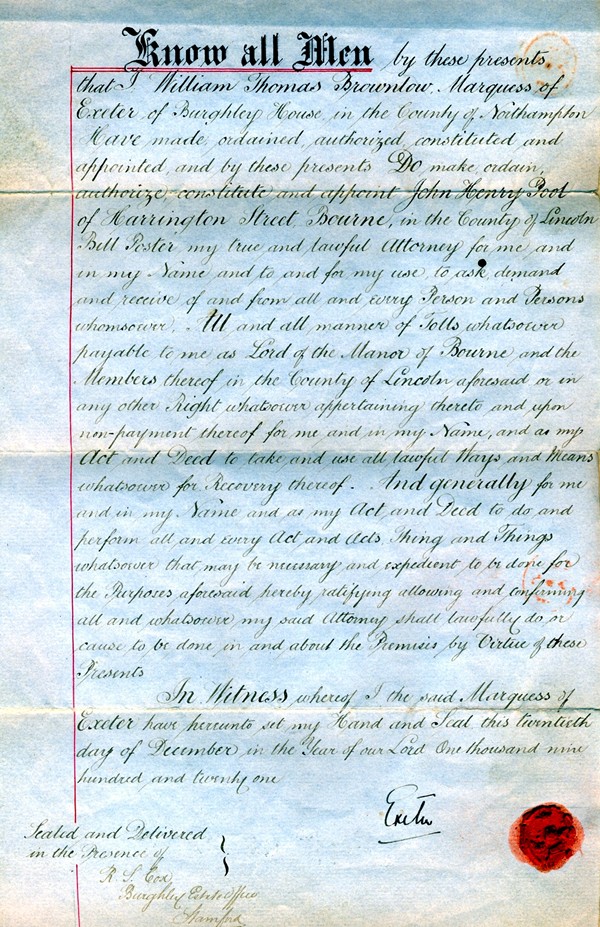 Know all Men by these presents
that I William Thomas Brownlow Marquess of
Exeter of Burghley House, in the County of Northampton
Have made, ordained, authorized, constituted and
appointed, and by these presents Do make, ordain,
authorize, constitute and appoint John Henry Pool
of Harrington Street, Bourne, in the County of Lincoln
Bill Poster my true and lawful Attorney for me and
in my Name and to and for my use, to ask, demand
and receive of and from all and every Person and Persons
whomsoever, All and all manner of Tolls whatsoever
payable to me as Lord of the Manor of Bourne and the
Members thereof in the County of Lincoln aforesaid or in
any other Right whatsoever appertaining thereto and upon
non-payment thereof for me and in my Name, and as my
Act and Deed to take and use all lawful Ways and Means
whatsoever for Recovery thereof. And generally for me
and in my Name and as my Act and Deed to do and
perform all and every Act and Acts Thing and Things
whatsoever that may be necessary and expedient to be done for
the Purposes aforesaid hereby ratifying allowing and confirming
all and whatsoever my said Attorney shall lawfully do, or
cause to be done in and about the Premises by Virtue of these
Presents
In Witness whereof I the said Marquess of
Exeter have hereunto set my Hand and Seal this twentieth
day of December in the Year of our Lord One thousand nine
hundred and twenty one
Exeter
Sealed and Delivered
in the Presence of
R. S. Cox
Burghley Estate Office
Stamford